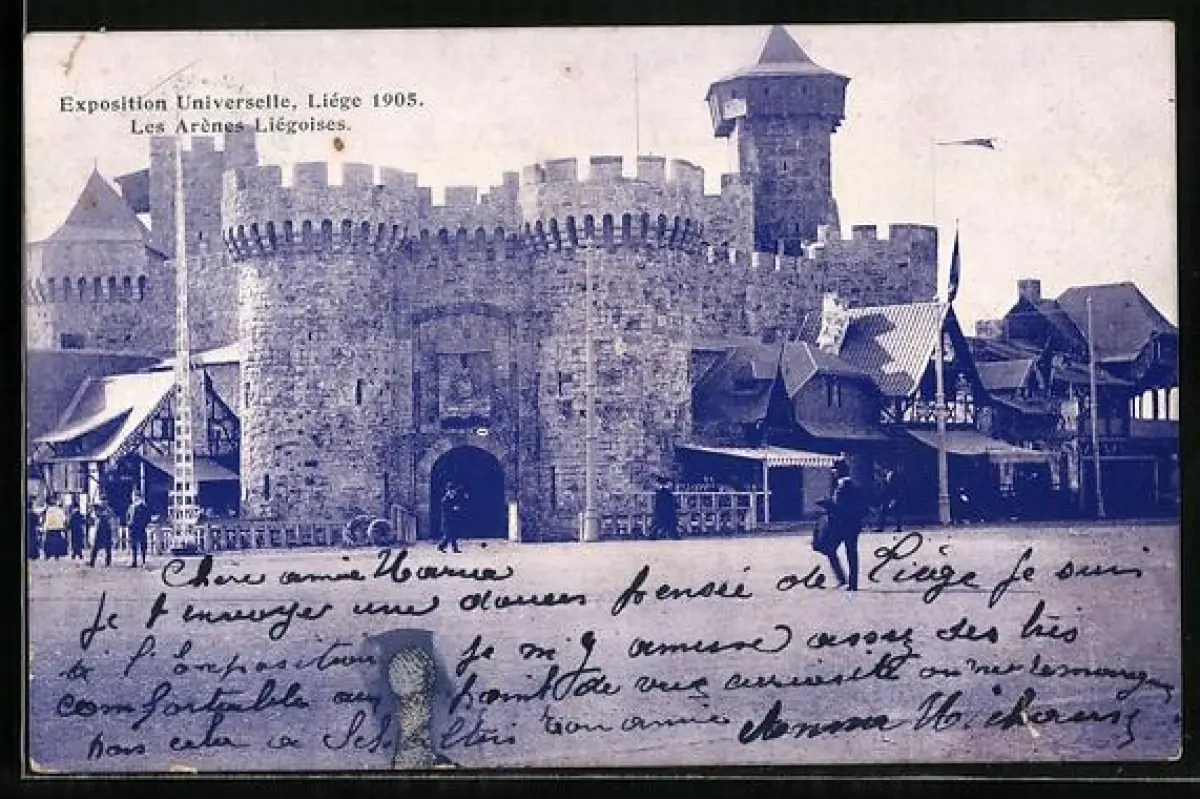 Exposition Universelle, Liége 1905.
Les Arènes Liégoises.
Chere amie Maria
Je t envoyer une douce pensée de Liége Je suis
a l'Exposition Je m'y amuse assez des très
comfortable au point de vue curiosité on ne
pas cela a ton amie Anna